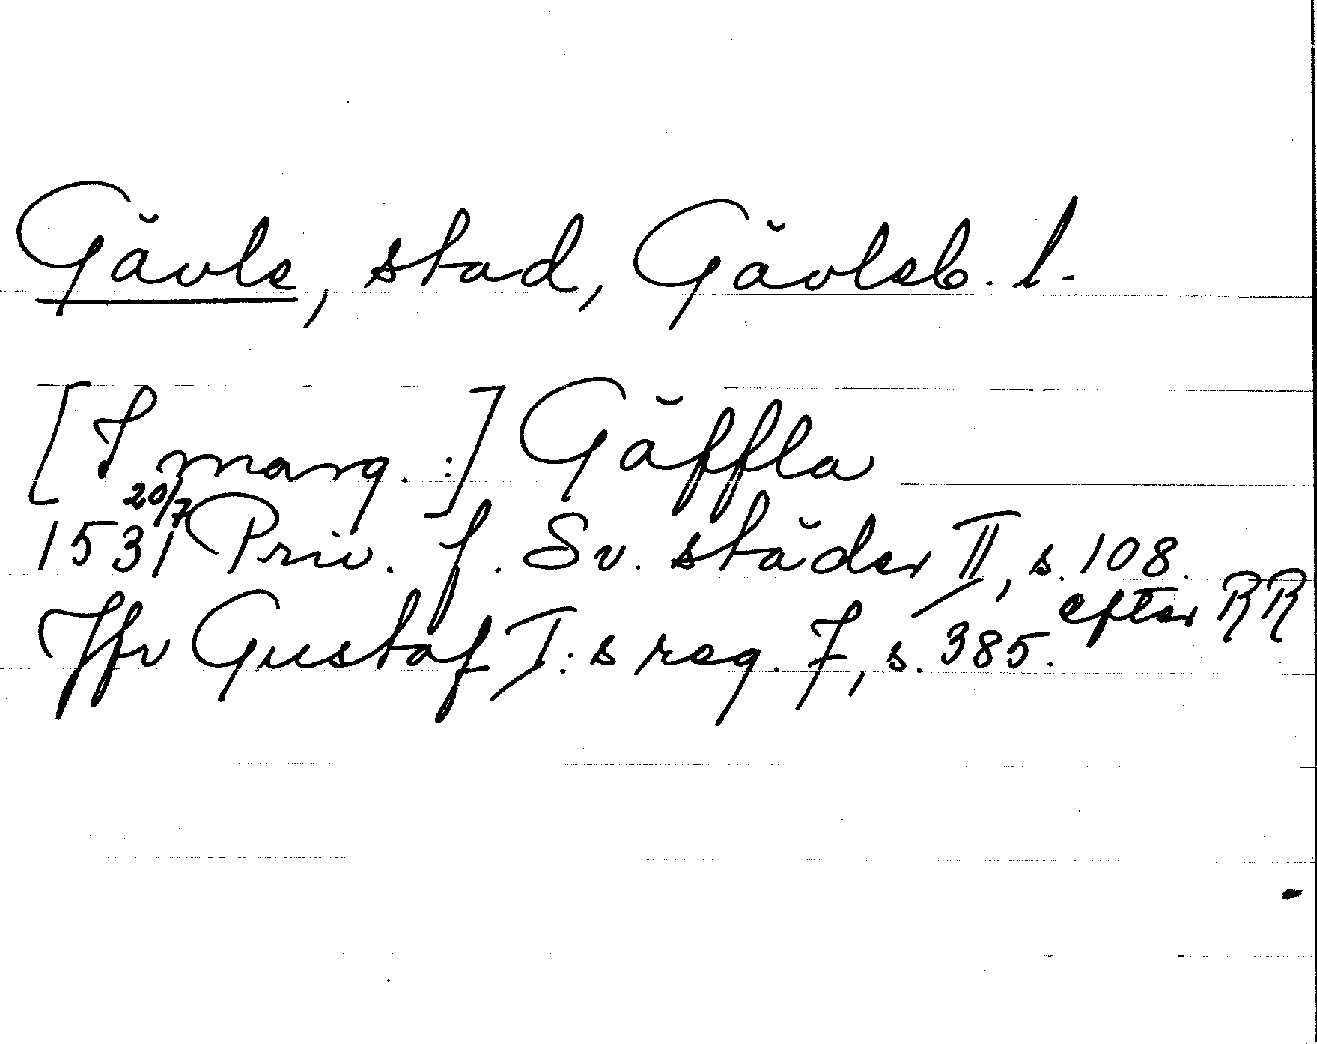 Gävle, stad, Gävleb. l.
[I marg.:] Gäffla
1531 20/7 Priv. f. Sv. städer II, s. 108.
efter RR
Jfr Gustaf I:s reg. 7, s. 385.